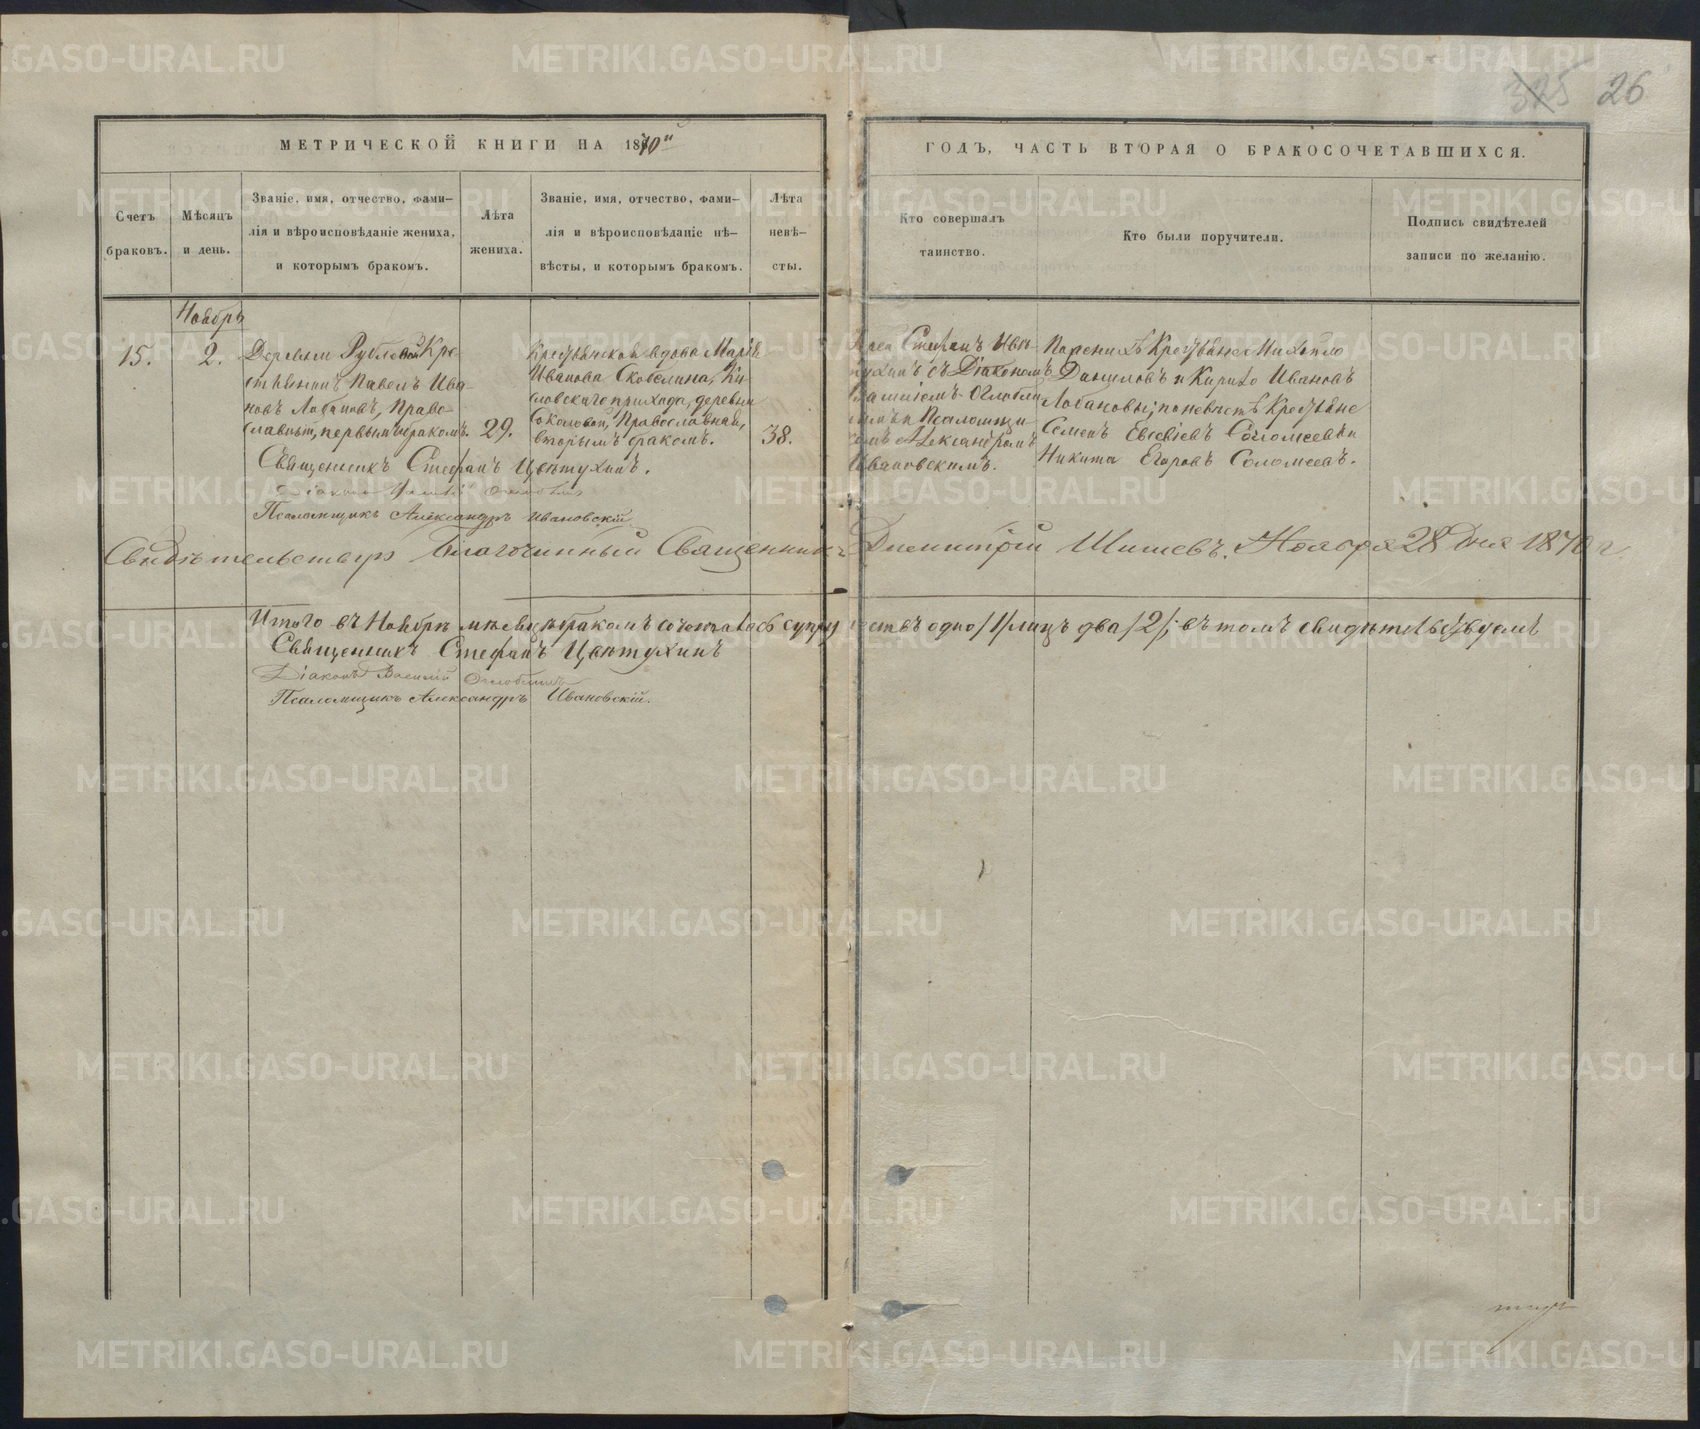 26
МЕТРИЧЕСКОЙ КНИГИ НА 1870й
ГОДЪ, ЧАСТЬ ВТОРАЯ О БРАКОСОЧЕТАВШИХСЯ.
Счетъ
браковъ.
Мѣсяцъ
и день.
Званіе, имя, отчество, фами-
лія и вѣроисповѣданіе жениха,
и которымъ бракомъ.
Лѣта
жениха.
Званіе, имя, отчество, фами-
лія и вѣроисповѣданіе не-
вѣсты, и которымъ бракомъ.
Лѣта
невѣ-
сты.
Кто совершалъ
таинство.
Кто были поручители.
Подпись свидѣтелей
записи по желанію.
Ноябрь
15.
2.
Деревни Рубловой Кре-
стьянинъ Павелъ Ива-
новъ Лобановъ, Право-
славный, первымъ бракомъ.
29.
Крестьянская вдова Марія
Иванова Скобелина, Ки-
словскаго прихода, деревни
Соколовой, Православная,
вторымъ бракомъ.
38.
Стефанъ Цвѣ-
тухинъ съ Діакономъ
Василіемъ Оглобли-
нымъ и Псаломщи-
комъ Александромъ
Ивановскимъ.
По женихѣ Крестьяне Михайло
Даниловъ и Кирило Ивановъ
Лобановы; по невѣстѣ Крестьяне
Семенъ Евсевіевъ Соломеевъ и
Никита Егоровъ Соломеевъ.
Священникъ Стефанъ Цвѣтухинъ.
Діаконъ Василій Оглоблинъ
Псаломщикъ Александръ Ивановскій.
Свидѣтельствую Благочинный Священникъ Димитрій Шишевъ. Ноября 28 дня 1870 г.
Итого въ Ноябрѣ мѣсяцѣ бракомъ сочеталось супружествъ одно /1/ лицъ два /2/; въ томъ свидѣтельствуемъ
Священникъ Стефанъ Цвѣтухинъ
Діаконъ Василій Оглоблинъ
Псаломщикъ Александръ Ивановскій.
METRIKI.GASO-URAL.RU